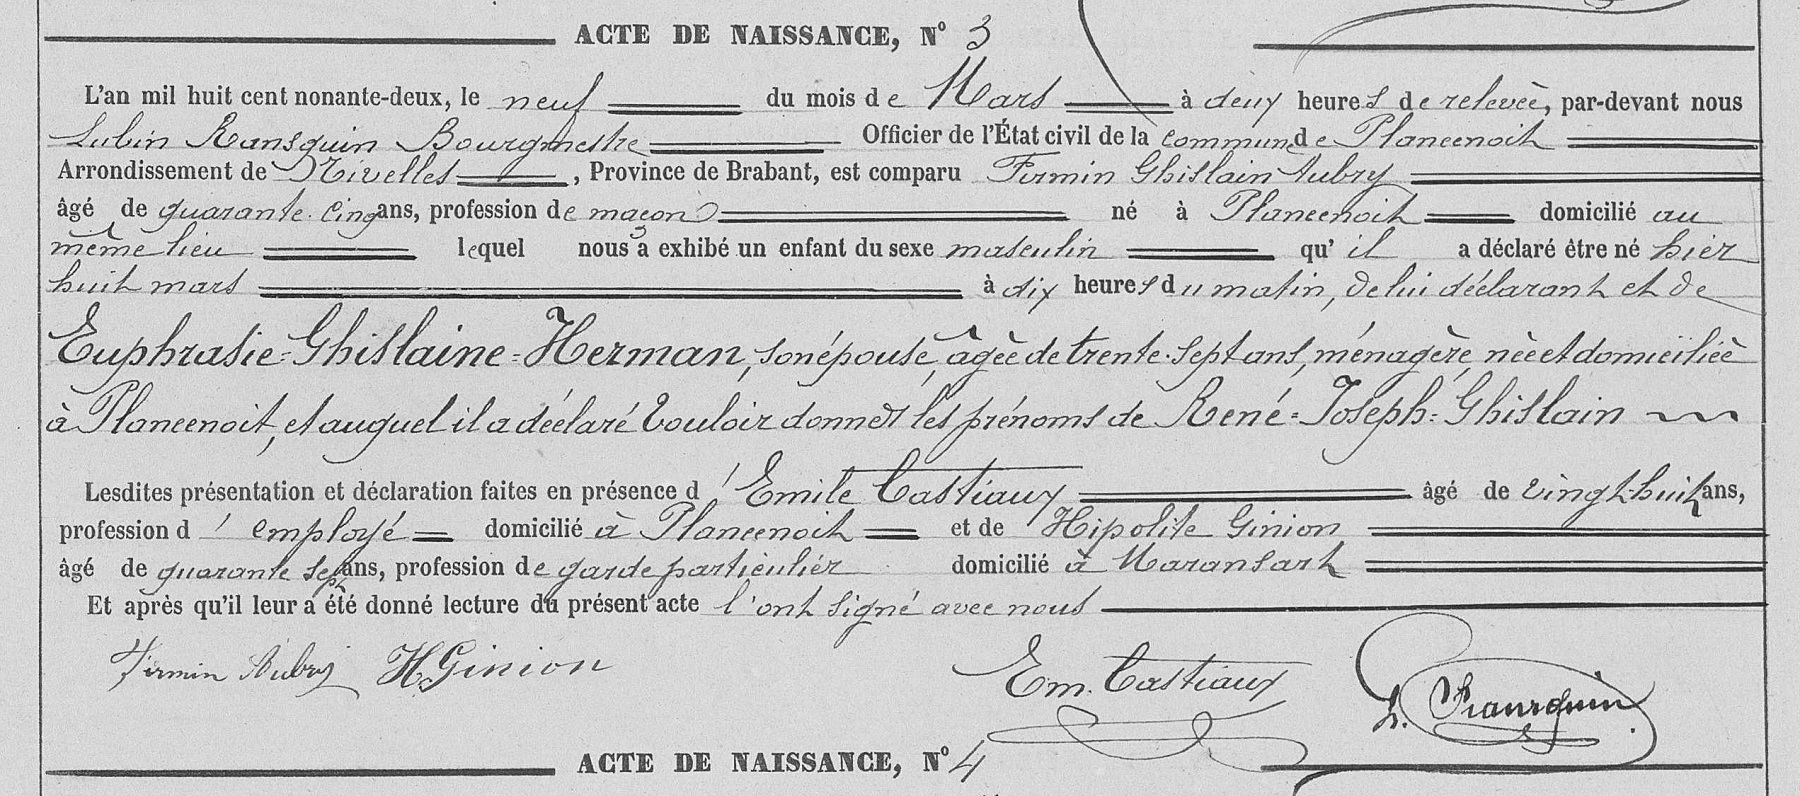 ACTE DE NAISSANCE, N° 3
L'an mil huit cent nonante-deux, le neuf du mois de Mars à deux heures de relevée, par-devant nous
Lubin Bourgmestre Officier de l'État civil de la commune de Plancenoit
Arrondissement de Nivelles, Province de Brabant, est comparu Firmin Ghislain Aubry
âgé de quarante-cinq ans, profession de maçon né à Plancenoit domicilié au
même lieu lequel nous a exhibé un enfant du sexe masculin qu'il a déclaré être né hier
huit mars à dix heures du matin, de lui déclarant et de
Euphrasie-Ghislaine-Herman, son épouse, âgée de trente-sept ans, ménagère, née et domiciliée
à Plancenoit, et auquel il a déclaré vouloir donner les prénoms de René-Joseph-Ghislain
Lesdites présentation et déclaration faites en présence d'Emile Castiaux âgé de vingt-huit ans,
profession d'employé domicilié à Plancenoit et de Hipolite Ginion
âgé de quarante sept ans, profession de garde particulier domicilié à Maransart
Et après qu'il leur a été donné lecture du présent acte l'ont signé avec nous
Firmin Aubry H. Ginion Em. Castiaux L.
ACTE DE NAISSANCE, N° 4